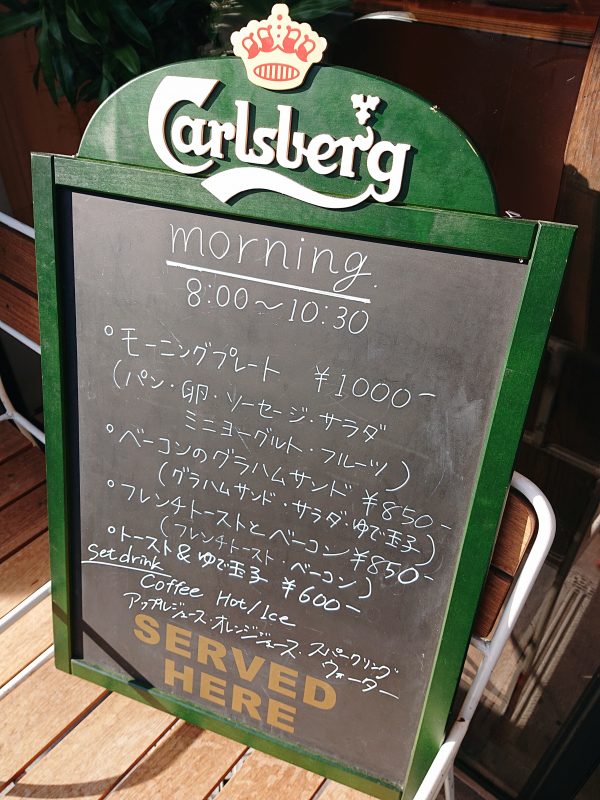 Carlsberg
morning.
8:00～10:30
°モーニングプレート ¥1000-
(パン・卵・ソーセージ・サラダ
ミニヨーグルト・フルーツ)
°ベーコンのグラハムサンド ¥850-
(グラハムサンド・サラダ・ゆで玉子)
°フレンチトーストとベーコン ¥850-
(フレンチトースト・ベーコン)
°トースト&ゆで玉子 ¥600-
Set drink
Coffee Hot/Ice
アップルジュース・オレンジジュース・スパークリング
ウォーター
SERVED
HERE